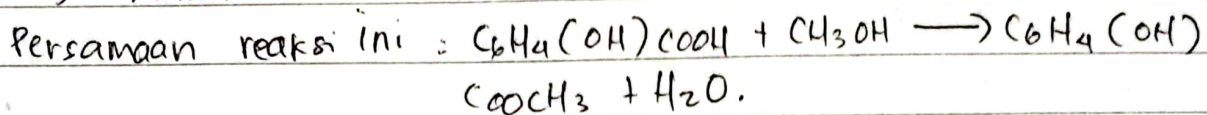 Persamaan reaksi ini : C6H4(OH)COOH + CH3OH ⟶ C6H4(OH)
COOCH3 + H2O.